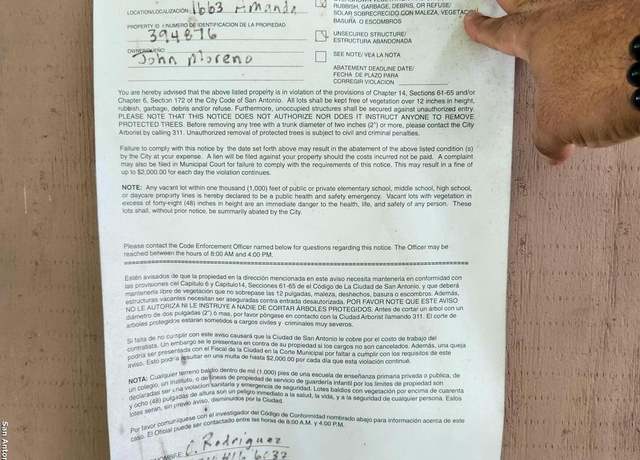 LOCATION/LOCALIZACIÓN 1663 Amanda
RUBBISH, GARBAGE, DEBRIS, OR REFUSE/
SOLAR SOBRECRECIDO CON MALEZA, VEGETACIÓN
BASURA O ESCOMBROS
PROPERTY ID / NUMERO DE IDENTIFICACION DE LA PROPIEDAD
394876
UNSECURED STRUCTURE/
ESTRUCTURA ABANDONADA
John Moreno
SEE NOTE/ VEA LA NOTA
ABATEMENT DEADLINE DATE/
FECHA DE PLAZO PARA
CORREGIR VIOLACION
You are hereby advised that the above listed property is in violation of the provisions of Chapter 14, Sections 61-65 and/or
Chapter 6, Section 172 of the City Code of San Antonio. All lots shall be kept free of vegetation over 12 inches in height,
rubbish, garbage, debris and/or refuse. Furthermore, unoccupied structures shall be secured against unauthorized entry.
PLEASE NOTE THAT THIS NOTICE DOES NOT AUTHORIZE NOR DOES IT INSTRUCT ANYONE TO REMOVE
PROTECTED TREES. Before removing any tree with a trunk diameter of two inches (2") or more, please contact the City
Arborist by calling 311. Unauthorized removal of protected trees is subject to civil and criminal penalties.
Failure to comply with this notice by the date set forth above may result in the abatement of the above listed condition (s)
by the City at your expense. A lien will be filed against your property should the costs incurred not be paid. A complaint
may also be filed in Municipal Court for failure to comply with the requirements of this notice. This may result in a fine of
up to $2,000.00 for each day the violation continues.
NOTE: Any vacant lot within one thousand (1,000) feet of public or private elementary school, middle school, high school,
or daycare property lines is hereby declared to be a public health and safety emergency. Vacant lots with vegetation in
excess of forty-eight (48) inches in height are an immediate danger to the health, life, and safety of any person. These
lots shall, without prior notice, be summarily abated by the City.
Please contact the Code Enforcement Officer named below for questions regarding this notice. The Officer may be
reached between the hours of 8:00 AM and 4:00 PM.
Estén avisados de que la propiedad en la dirección mencionada en este aviso necesita mantenerla en conformidad con
las provisiones del Capitulo 6 y Capitulo14, Secciones 61-65 de el Código de La Ciudad de San Antonio, y que deberá
mantenerla libre de vegetación que no sobrepase las 12 pulgadas, maleza, deshechos, basura o escombros. Además,
estructuras vacantes necesitan ser aseguradas contra entrada desautorizada. POR FAVOR NOTE QUE ESTE AVISO
NO LE AUTORIZA NI LE INSTRUYE A NADIE DE CORTAR ÁRBOLES PROTEGIDOS. Antes de cortar un árbol con un
diámetro de dos pulgadas (2") ó mas, por favor póngase en contacto con la Ciudad Arborist llamando 311. El corte de
árboles protegidos estarán sometidos a cargos civiles y criminales muy severos.
Si falta de no cumplir con este aviso causará que la Ciudad de San Antonio le cobre por el costo de trabajo del
contratista. Un embargo se le presentara en contra de su propiedad si los cargos no son cancelados. Además, una queja
podría ser presentada con el Fiscal de la Ciudad en la Corte Municipal por faltar a cumplir con los requisitos de este
aviso. Esto podría resultar en una multa de hasta $2,000.00 por cada día que esta violación continué.
NOTA: Cualquier terreno baldío dentro de mil (1,000) pies de una escuela de enseñanza primaria privada o publica, de
un colegio, un instituto, o de líneas de propiedad de servicio de guardería infantil por los limites de propiedad son
declaradas ser una violación sanitaria y emergencia de seguridad. Lotes baldíos con vegetación por encima de cuarenta
y ocho (48) pulgadas de altura son un peligro inmediato a la salud, la vida, y a la seguridad de cualquier persona. Estos
lotes serán, sin previo aviso, disminuidos por la Ciudad.
Por favor comuníquese con el investigador del Código de Conformidad nombrado abajo para información acerca de este
caso. El Oficial puede ser contactado entre las horas de 8:00 A.M. y 4:00 P.M.
NOMBRE: C. Rodriguez
6037
San Anton